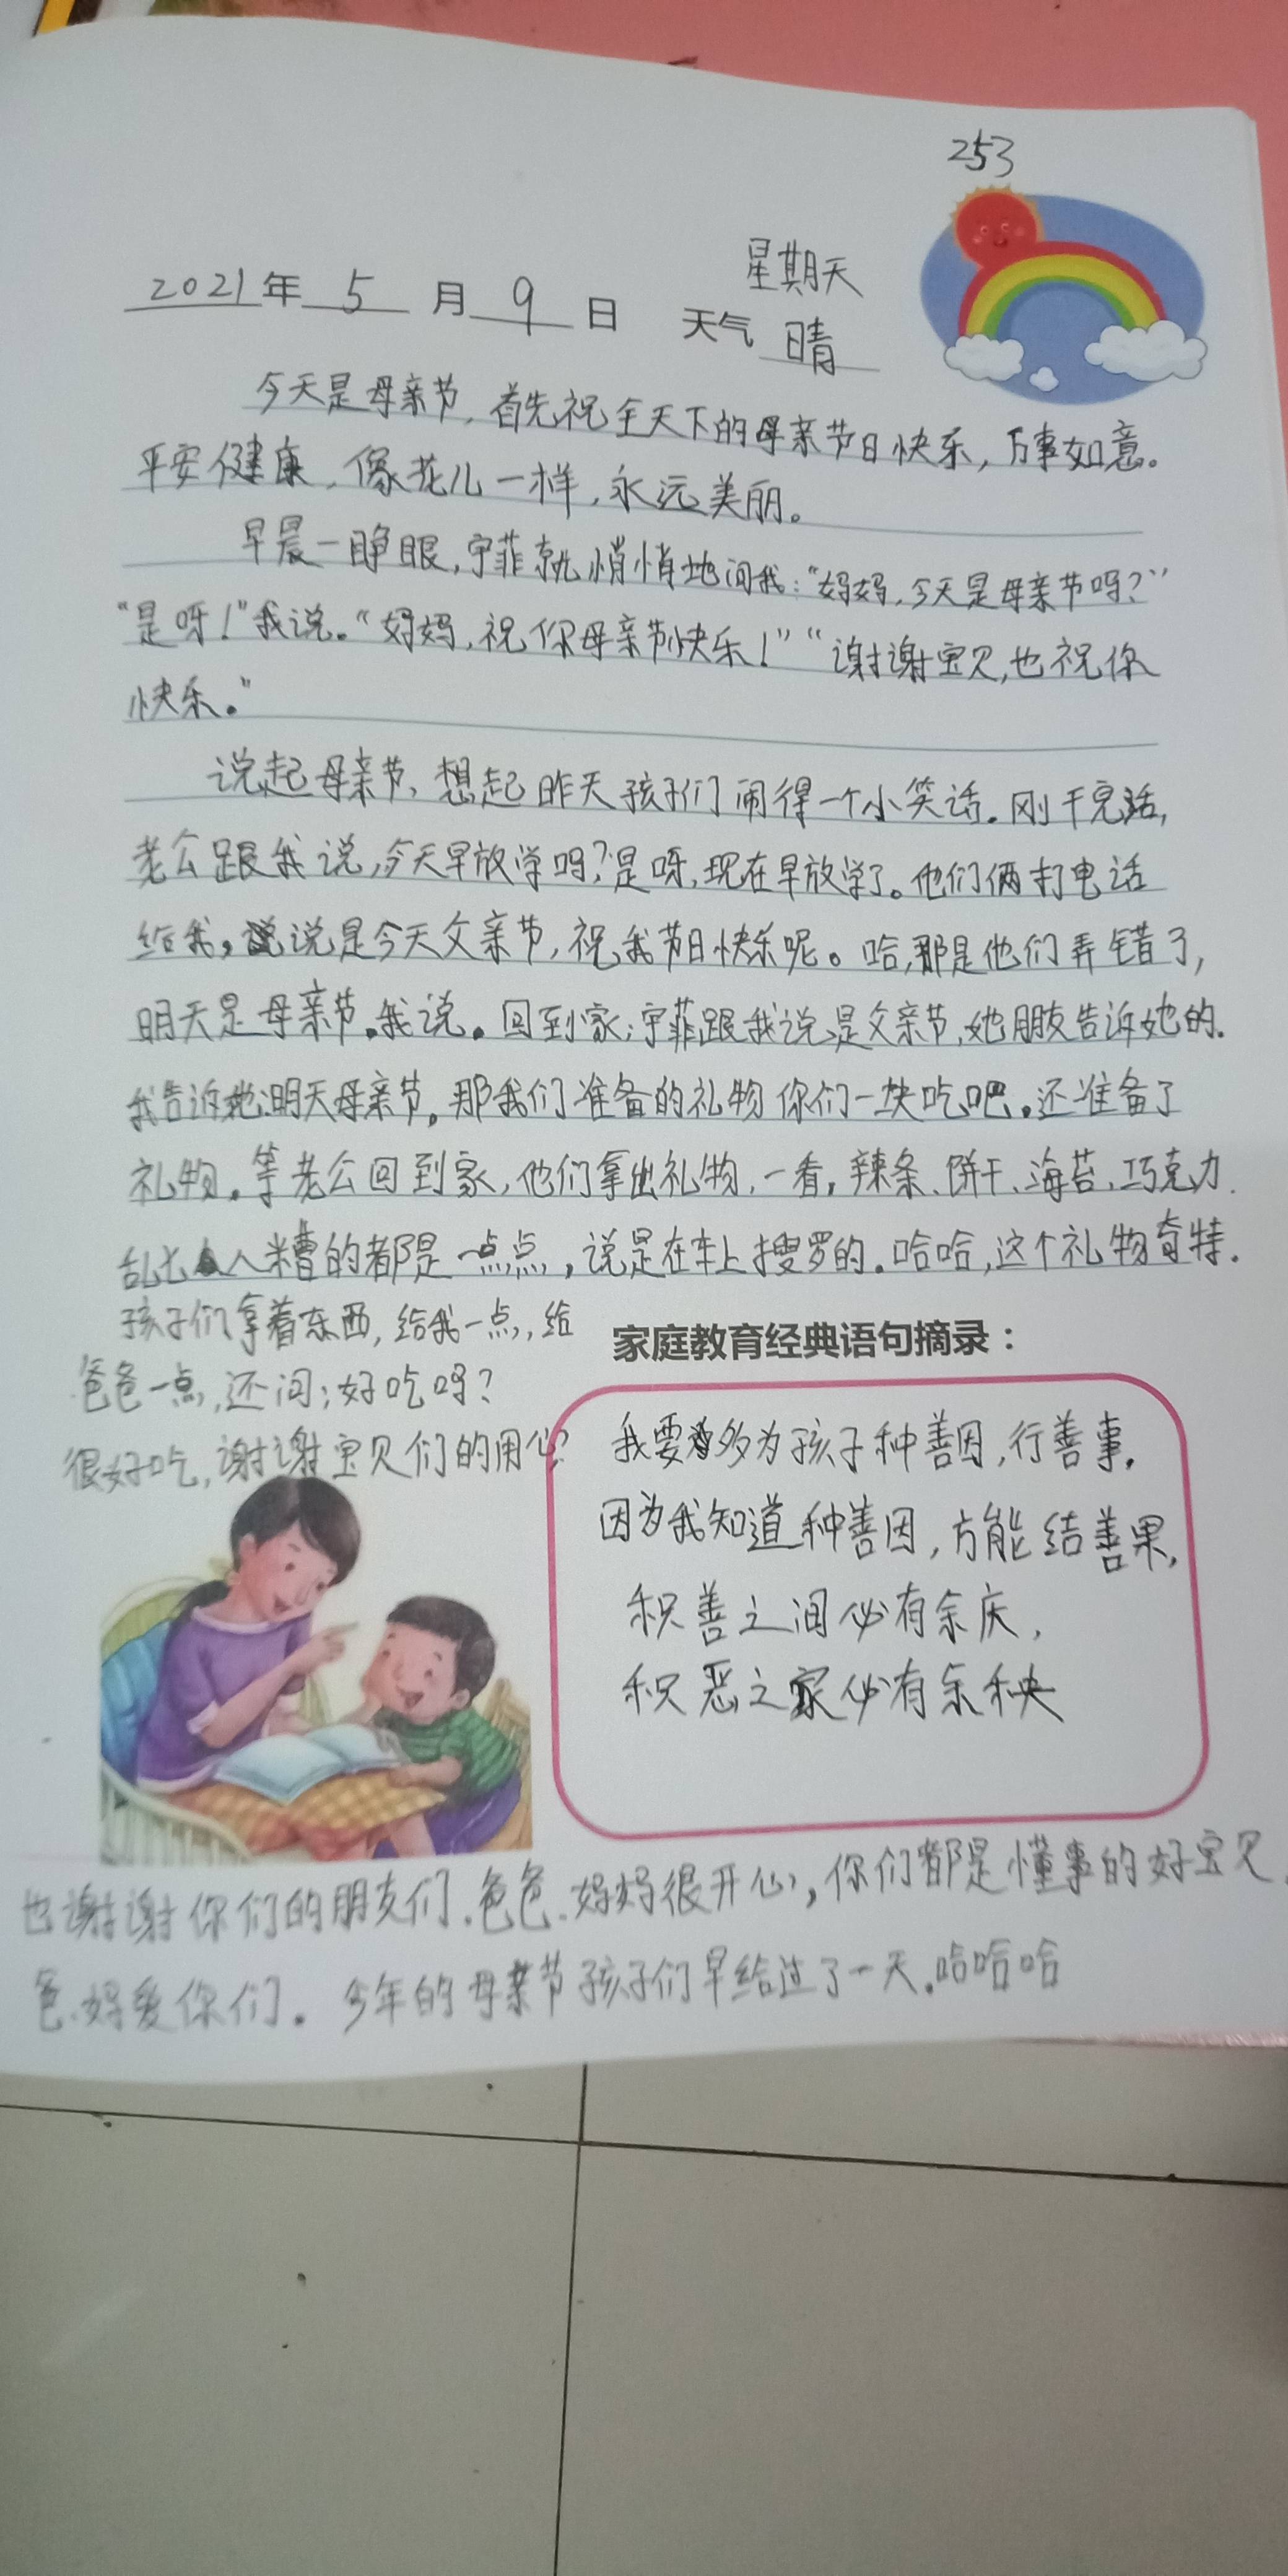 253
星期天
2021年 5 月 9 日 天气 晴
今天是母亲节,首先祝全天下的母亲节日快乐,万事如意。
平安健康,像花儿一样,永远美丽。
早晨一睁眼,宇菲就悄悄地问我:“妈妈,今天是母亲节吗?”
“是呀!”我说。“妈妈,祝你母亲节快乐!”“谢谢宝贝,也祝你
快乐。”
说起母亲节,想起昨天孩子们闹得一个小笑话。刚干完活,
老公跟我说,今天早放学吗?是呀,现在早放学了。他们俩打电话
给我,说说是今天父亲节,祝我节日快乐呢。哈,那是他们弄错了,
明天是母亲节。我说。回到家,宇菲跟我说是父亲节,她朋友告诉她的.
我告诉她:明天母亲节。那我们准备的礼物你们一块吃吧。还准备了
礼物。等老公回到家,他们拿出礼物,一看,辣条、饼干、海苔、巧克力.
乱七八糟的都是一点点,说是在车上搜罗的。哈哈,这个礼物奇特.
孩子们拿着东西,给我一点,给
爸爸一点,还问:好吃吗?
很好吃,谢谢宝贝们的用心?
家庭教育经典语句摘录:
我要多为孩子种善因,行善事.
因为我知道种善因,方能结善果,
积善之间必有余庆,
积恶之家必有余秧
也谢谢你们的朋友们.爸爸.妈妈很开心,你们都是懂事的好宝贝.
爸.妈爱你们。今年的母亲节孩子们早给过了一天.哈哈哈